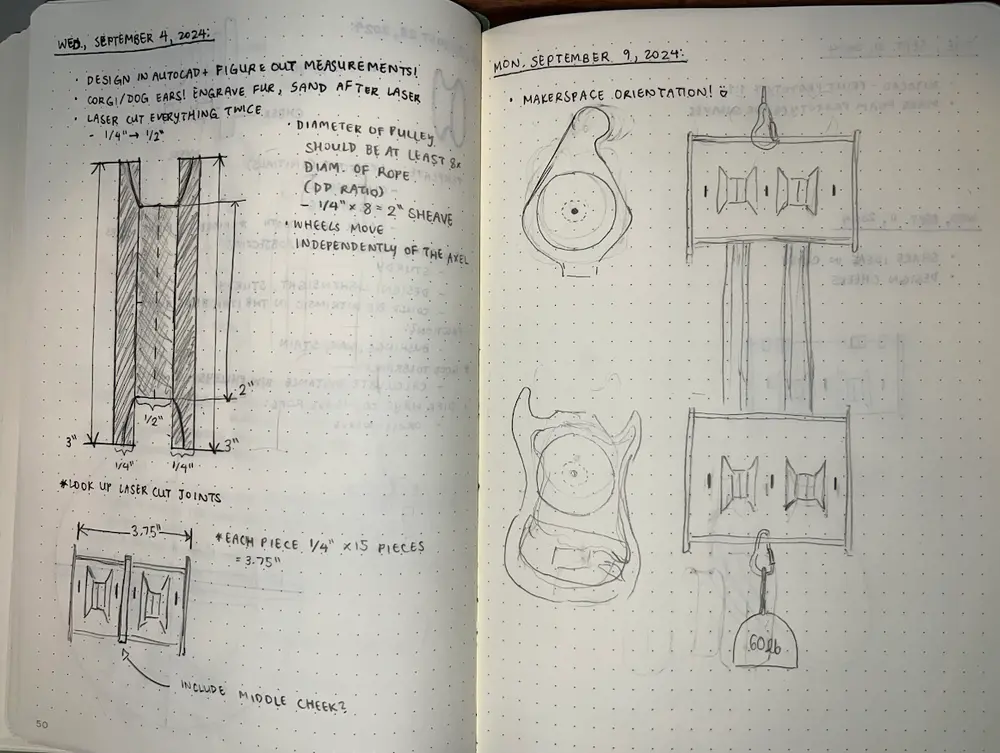 WED., SEPTEMBER 4, 2024:
• DESIGN IN AUTOCAD + FIGURE OUT MEASUREMENTS!
• CORGI/DOG EARS! ENGRAVE FUR, SAND AFTER LASER
• LASER CUT EVERYTHING TWICE
- 1/4" → 1/2"
• DIAMETER OF PULLEY
SHOULD BE AT LEAST 8x
DIAM. OF ROPE
(DD RATIO)
- 1/4" x 8 = 2" SHEAVE
• WHEELS MOVE
INDEPENDENTLY OF THE AXEL
2"
1/2"
3"
3"
1/4"
1/4"
*LOOK UP LASER CUT JOINTS
3.75"
*EACH PIECE 1/4" x 15 PIECES
= 3.75"
INCLUDE MIDDLE CHEEK?
50
MON. SEPTEMBER 9, 2024:
• MAKERSPACE ORIENTATION!
60lb